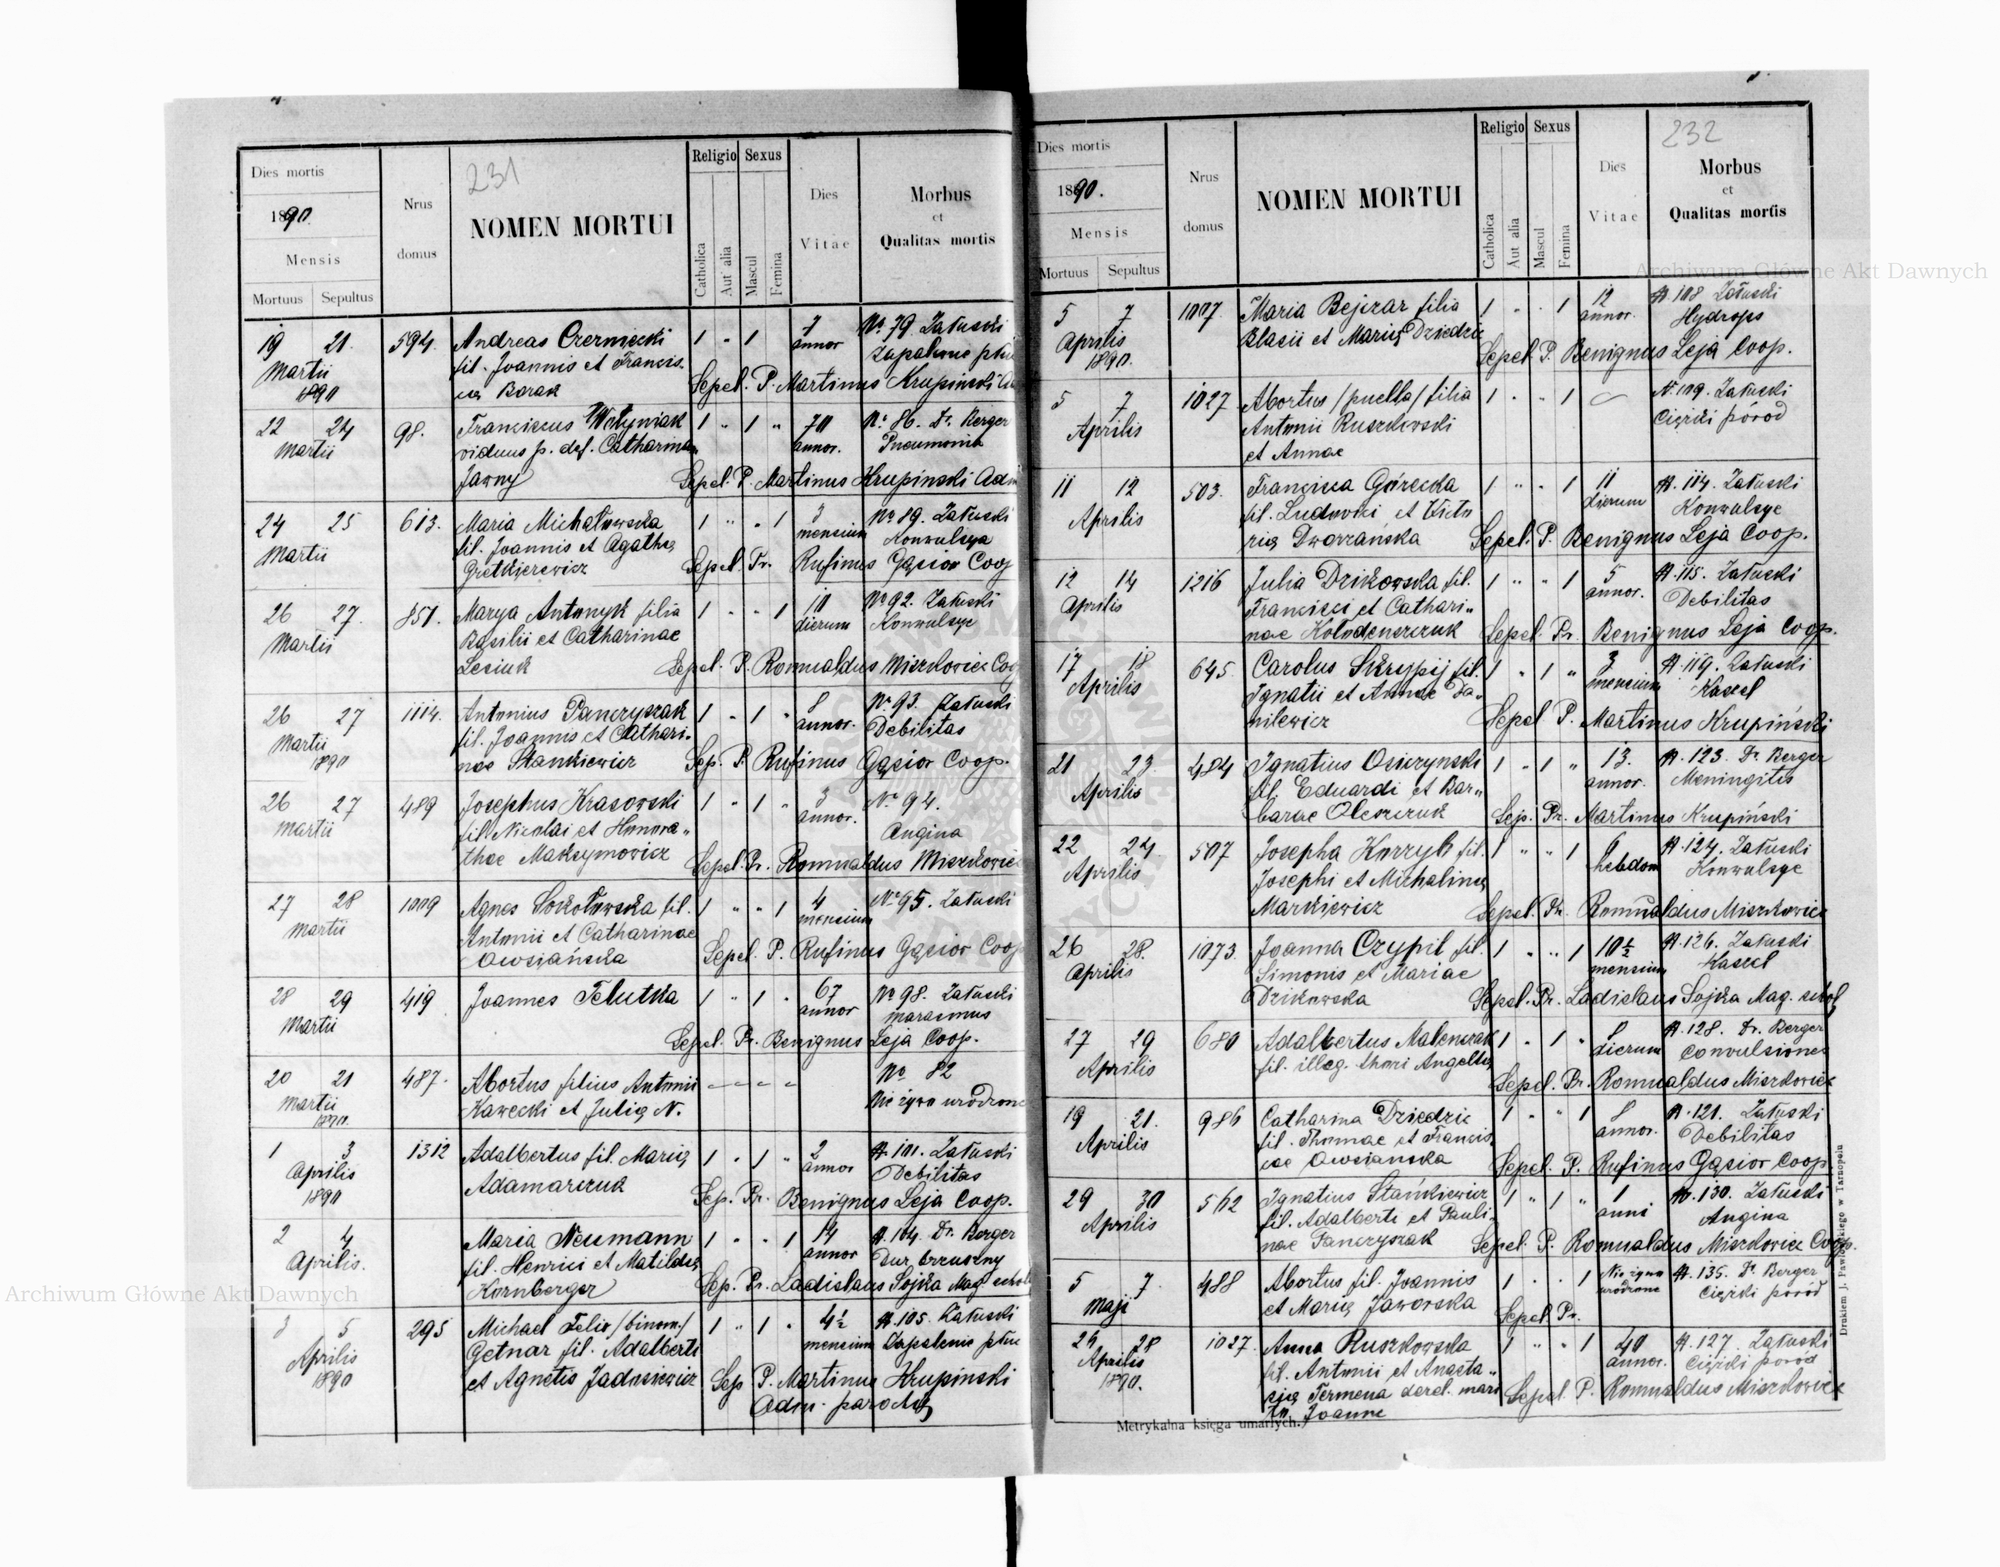 231
Dies mortis
1890.
Mensis
Mortuus Sepultus
Nrus
domus
NOMEN MORTUI
Religio Sexus
Catholica
Aut alia
Mascul
Femina
Dies
Vitae
Morbus
et
Qualitas mortis
19 21 594 Andreas Czerniecki 1 " 1 7 No 79. Załuski
Martii fil. Joannis et Francis- annor Zapalenie
1890 Borak Sepel. P. Martinus Krupinski
22 24 98. Franciscus Wołyniak 1 " 1 " 70 N. 86. Dr. Berger
Martii viduus p. def. Catharina annor. Pneumonia
Jawny Sepel. P. Martinus Krupinski
24 25 613. Maria Michałowska 1 " " 1 3 No 89. Załuski
Martii fil. Joannis et Agathę mensium Konwulsya
Gretkierewicz Sepel. Pr. Rufinus Gąsior Coop
26 27. 851. Marya Antonyk filia 1 " " 1 10 No 92. Załuski
Martii Basilii et Catharinae dierum Konwulsye
Lesiuk Sepel. P. Romualdus Miszkowicz
26 27 1114. Antonius Panczyszak 1 " 1 " No 93. Załuski
Martii fil. Joannis et Cathari- annor. Debilitas
1890 nae Stankiewicz Sep. P. Rufinus Gąsior Coop.
26 27 489 Josephus Krasowski 1 " 1 " 3 No 94.
Martii fil. Nicolai et Honora" annor. Angina
thae Maksymowicz Sepel. Pr. Romualdus
27 28 1009 Agnes Sokołowska fil. 1 " " 1 4 No 95. Załuski
Martii Antonii et Catharinae mensium
Owsiańska Sepel. P. Rufinus Gąsior Coop
28 29 419 Joannes 1 " 1 " 67 No 98. Załuski
Martii annor marasmus
Sepel. Pr. Benignus Leja Coop.
20 21 487. Abortus filius Antonii No 82
Martii Kawecki et Julię N. Nie żywo urodzone
1890.
1 3 1312 Adalbertus fil. Marię 1 " 1 " 2 N. 101. Załuski
Aprilis Adamarczuk annor Debilitas
1890 Sep. Pr. Benignus Leja Coop.
2 4 Maria Neumann 1 " " 1 14 N. 104. Dr. Berger
Aprilis. fil. Henrici et Matildę annor Dur brzuszny
Kornberger Sep. Pr. Ladislaus Sojka Mag.
3 5 295 Michael Felix /binom./ 1 " 1 " 4½ N. 105. Załuski
Aprilis Getnar fil. Adalberti mensium Zapalenie
1890 et Agnetis Sep P. Martinus Krupinski
Adm. parochię
232
Dies mortis
1890.
Mensis
Mortuus Sepultus
Nrus
domus
NOMEN MORTUI
Religio Sexus
Catholica
Aut alia
Mascul
Femina
Dies
Vitae
Morbus
et
Qualitas mortis
5 7 1007. Maria Bejzar filia 1 " " 1 12 N. 108 Załuski
Aprilis Blasii et Marię Dziedzic annor. Hydrops
1890. Sepel. P. Benignus Leja Coop.
5 7 1027 Abortus /puella/ filia 1 " " 1 N. 109. Załuski
Aprilis Antonii Ruszkowski Ciężki poród
et Annae
11 12 503. Francisca Górecka 1 " " 1 11 N. 114. Załuski
Aprilis fil. Ludovici et Victo dierum Konwulsye
rię Dworzańska Sepel. P. Benignus Leja Coop.
12 14 1216 Julia Dzikowska fil. 1 " " 1 5 N. 115. Załuski
Aprilis Francisci et Cathari" annor. Debilitas
nae Kołodenerczuk Sepel. Pr. Benignus Leja Coop.
17 18 645. Carolus Skrypij fil. 1 " 1 " 3 N. 119. Załuski
Aprilis Ignatii et Annae Da" mensium Kaszel
nilewicz Sepel P. Martinus Krupiński
21 23. 484 Ignatius 1 " 1 " 13. N. 123. Dr. Berger
Aprilis fil. Eduardi et Bar" annor. Meningitis
barae Olearczuk Sep. Pr. Martinus Krupiński
22 24. 507 Josepha fil. 1 " " 1 N. 124. Załuski
Aprilis Josephi et Michalinę hebdom Konwulsye
Markiewicz Sepel. Pr. Romualdus Miszkowicz
26 28. 1073. Joanna Czypil fil. 1 " " 1 10½ N. 126. Załuski
Aprilis Simonis et Mariae mensium Kaszel
Dzikowska Sepel. Pr. Ladislaus Sojka Mag.
27 29 680 Adalbertus 1 " 1 " N. 128. Dr. Berger
Aprilis fil. illeg. thori dierum Convulsiones
Sepel. Pr. Romualdus Miszkowicz
19 21. 986 Catharina Dziedzic 1 " " 1 N. 121. Załuski
Aprilis fil. Thomae et Francis annor. Debilitas
cae Owsiańska Sepel. P. Rufinus Gąsior Coop.
29 30 562 Ignatius Stańkiewicz 1 " 1 " 1 N. 130. Załuski
Aprilis fil. Adalberti et Pauli- anni Angina
nae Panczyszak Sepel. P. Romualdus Miszkowicz Coop.
5 7. 488 Abortus fil. Joannis 1 " " 1 Nie żywo N. 135. Dr Berger
Maji et Marię Jaworska urodzone Ciężki poród
Sepel Pr.
26 28 1027. Anna Ruszkowska 1 " " 1 40 N. 127. Załuski
Aprilis fil. Antonii et Anasta" annor. Ciężki poród
1890. zię Termena derel. Sepel. P. Romualdus Miszkowicz
Joanne
Metrykalna księga umarłych.
Drukiem J. Pawłowskiego w Tarnopolu
Archiwum Główne Akt Dawnych
Archiwum Główne Akt Dawnych